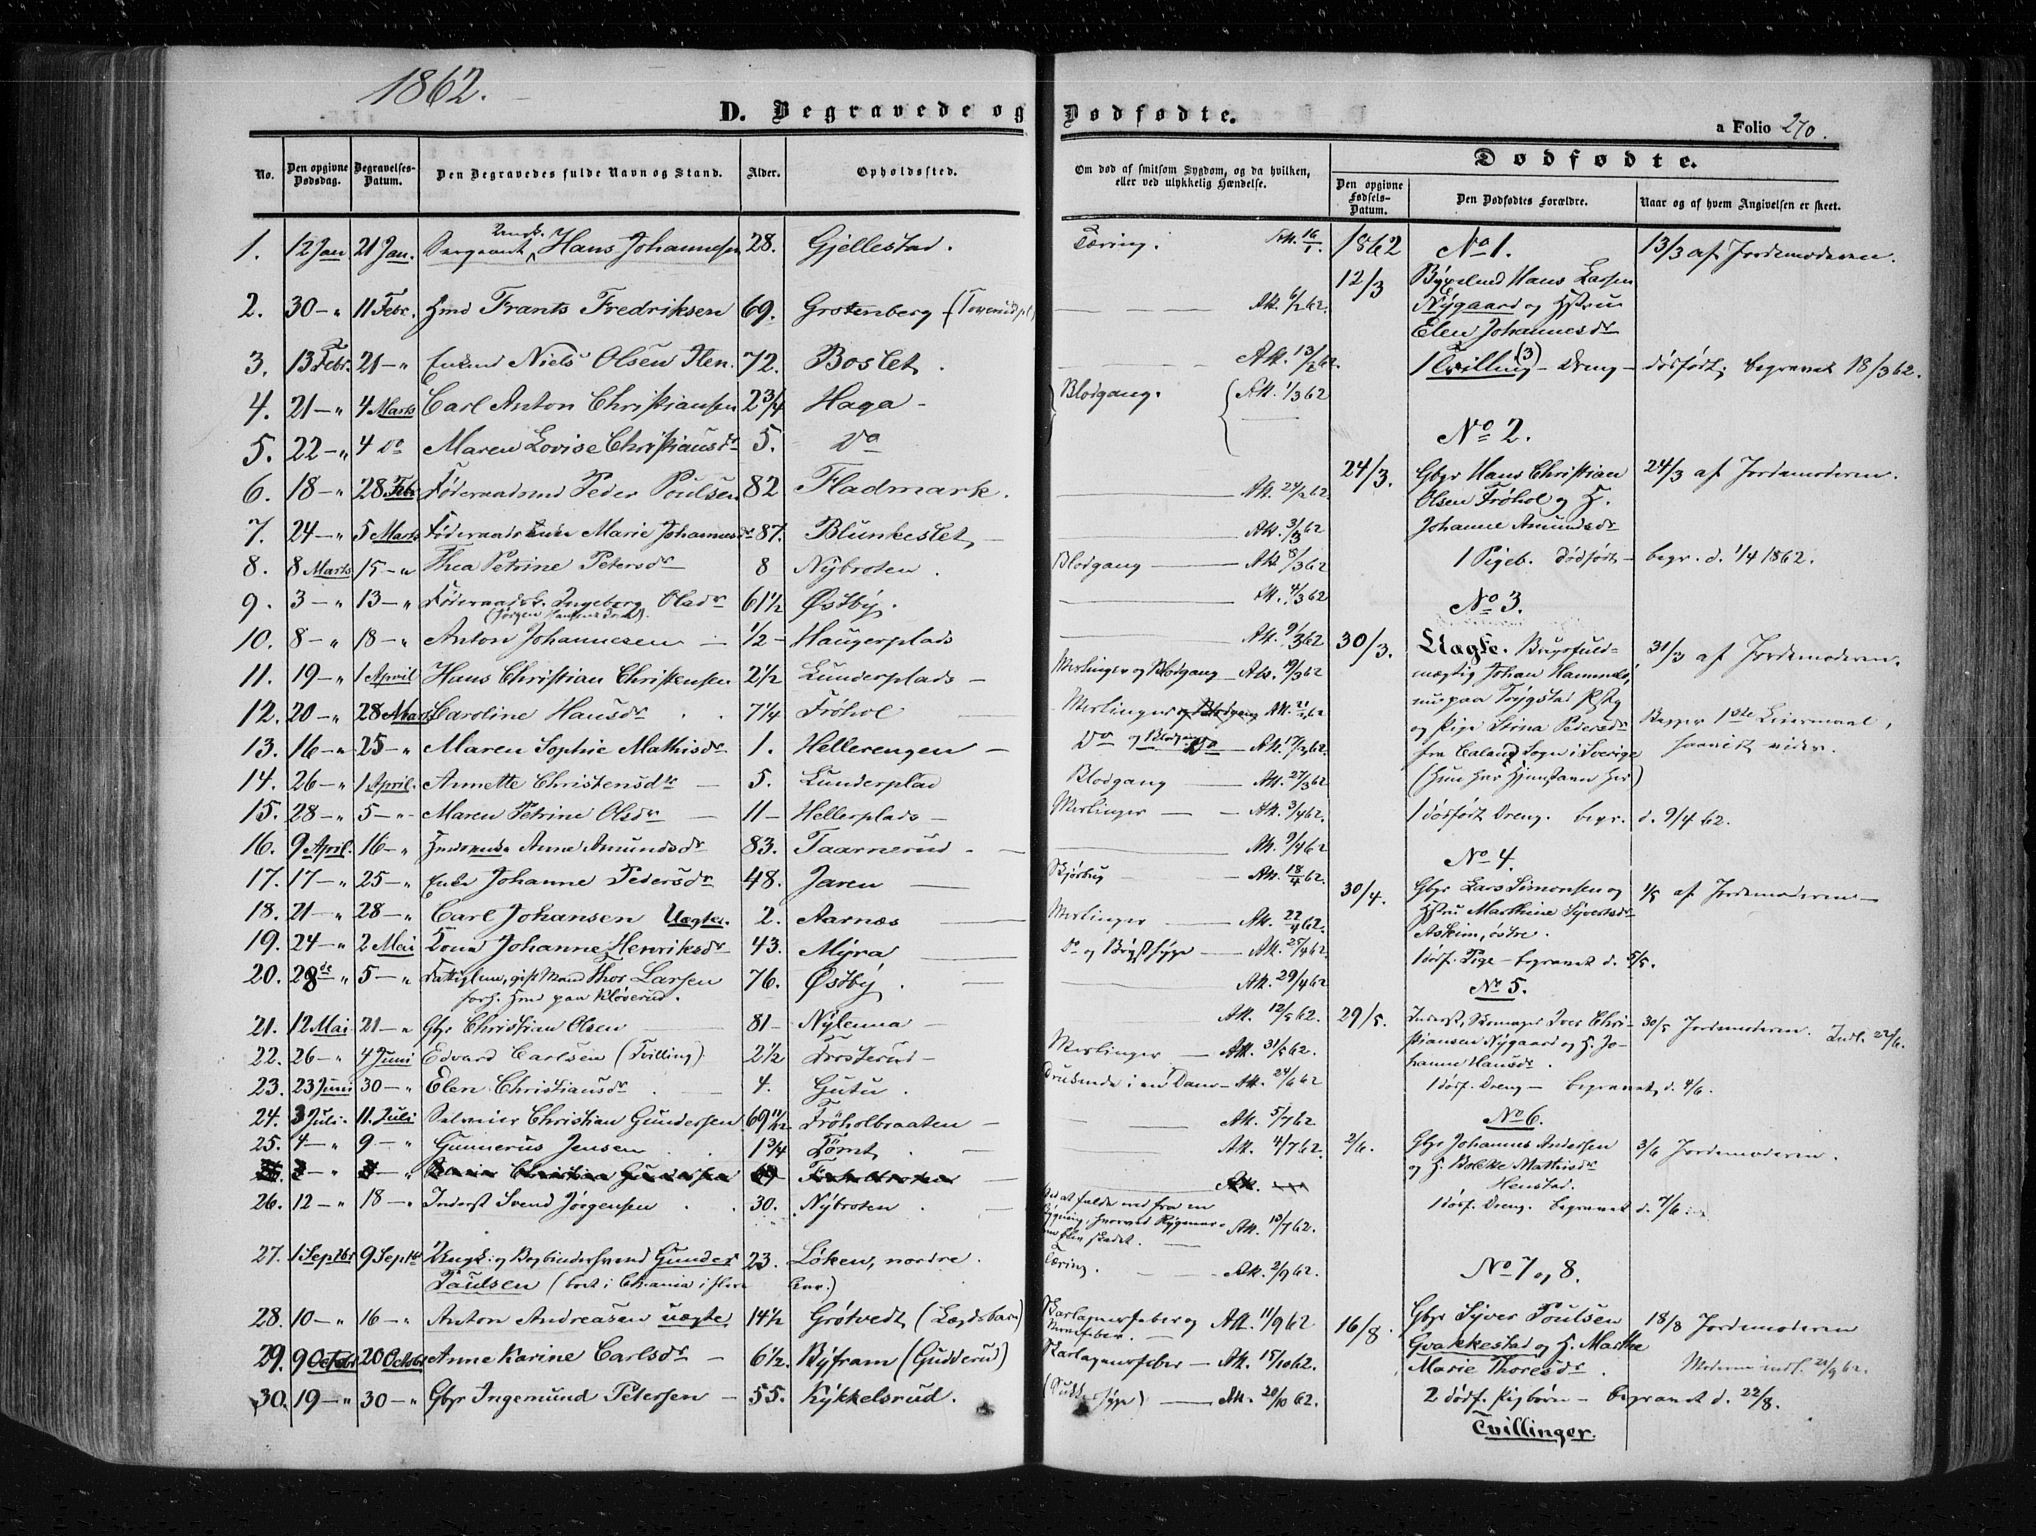 1862.
D. Begravede og Dødfødte.
a Folio 270.
No. | Den opgivne Dødsdag. | Begravelses-Datum. | Den Begravedes fulde Navn og Stand. | Alder. | Opholdssted. | Om død af smitsom Sygdom, og da hvilken, eller ved ulykkelig Hændelse.
1. 12 Jan 21 Jan. Sergeant, Ungk. Hans Johannesen 28. Gjellestad. Tæring. Att. 16/1.
2. 30 - " 11 Febr. Hmd Frants Fredriksen 69. Grotenberg Att. 6/2 62.
3. 13 Febr. 21 - " Enkmd Niels Olsen Ilen 72. Boslet. Att. 13/2 62.
4. 21 - " 4 Marts Carl Anton Christiansen 2 3/4 Haga - Blodgang. Att. 1/3 62
5. 22 - " 4 do Maren Lovise Christiansdr 5. do
6. 18 - " 28 Febr Føderaadsmd Peder Poulsen 82 Fladmark. Att. 24/2 62.
7. 24 - " 5 Marts Føderaads Enke Marie Johannesdr 87. Blunkeslet, Att. 3/3 62
8. 8 Marts 15 - " Thea Petrine Petersdr 8 Nybroten. Blodgang Att. 8/3 62
9. 3 - " 13 - " Føderaadsk. Ingeborg Olsdr 61 1/2 Østby. Att. 4/3 62
10. 8 - " 18 - " Anton Johannesen 1/2 - Haugerplads Att. 9/3 62
11. 19 - " 1 April Hans Christian Christensen 2 1/2 Lunderplads - Meslinger og Blodgang Att. 19/3 62
12. 20 - " 28 Marts Caroline Hansdr 7 1/4 Frøhol Meslinger og Blodgang Att. 21/3 62
13. 16 - " 25 - " Maren Sophie Mathisdr 1. Hellerengen - do og Blodgang do Att. 17/3 62.
14. 26 - " 1 April. Annette Christensdr 5. Lunderplad Blodgang Att. 27/3 62
15. 28 - " 5 - " Maren Petrine Olsdr 11 - Hellerplads - Meslinger Att. 3/4 62.
16. 9 April. 16 - " Hmdsenke Anne Amundsdr 83. Taarnerud - Att. 9/4 62
17. 17 - " 25 - " Enke Johanne Pedersdr 48. Jaren Skjørbug Att. 18/4 62.
18. 21 - " 28 - " Carl Johansen Uægte. 2. Aarnæs Meslinger Att. 22/4 62.
19. 24 - " 2 Mai Kona Johanne Henriksdr 43. Myra do og Brystsyge Att. 25/4 62.
20. 28de " 5 - " Fattiglem, gift Mand Thor Larsen 76. Østby. Att. 29/4 62
forh. Hmd paa Kløverud.
21. 12 Mai 21 - " Gbr Christian Olsen 81 - Nylenna - Att. 12/5 62.
22. 26 - " 4 Juni Edvard Carlsen (Tvilling) 2 1/2 Frosterud - Meslinger Att. 31/5 62.
23. 23 Juni 30 - " Elen Christiansdr 4. Gutu. Druknede i en Dam - Att. 24/6 62
24. 3 Juli. 11 Juli Christian Gundersen 69 11/12 Frøholbraaten - Att. 5/7 62
25. 4 - " 9 - " Gunnerus Jensen 1 3/4 Tømt. Att. 4/7 62.
26. 12 - " 18 - " Inderst Svend Jørgensen 30. Nybroten. Ved at falde ned fra en Bygning, hvorved Rygmarven blev skadet. Att. 13/7 62.
27. 1 Septbr 9 Septbr Ungk. og Bogbindersvend Gunder Paulsen 23. Løken, nordre. Tæring. Att. 2/9 62.
28. 10 - " 16 - " Anton Andreasen uægte 14 1/2 Grøtvedt (Lægdsbarn) Skarlagensfeber og Nervefeber. Att. 11/9 62
29. 9 Octobr 20 Octobr Anne Karine Carlsdr 6 1/2. Byfram (Gudderud) Skarlagensfeber Att. 15/10 62.
30. 19 - " 30 - " Gbr Ingemund Petersen 55. Kykkelsrud. Att. 20/10 62.
Dødfødte.
Den opgivne Fødsels-Datum. | Den Dødfødtes Forældre. | Naar og af hvem Angivelsen er skeet.
1862 No 1. 13/3 af Jordemoderen.
12/3 Hans Larsen
Nygaard og Hstru
Elen Johannesdr
1 Tvilling (3) - Dreng - dødfødt; begravet 18/3 62.
No 2.
24/3. Gbr Hans Christian 24/3 af Jordemoderen.
Olsen Frøhol og H.
Johanne Amundsdr
1 Pigeb. dødfødt - begr. d. 1/4 1862.
No 3.
30/3. Uægte. Brugsfuld- 31/3 af Jordemoderen.
mægtig Johan
paa Trøgstad
og Pige Stina Pedersdr Begges 1ste Leiermaal,
fra Sogn i Sverige saavidt vides.
(Hun har Hjemstavn her)
1 dødfødt Dreng. begr. d. 9/4 62.
No 4.
30/4. Gbr Lars Simonsen og 1/5 af Jordemoderen -
Hstru Marthine Syvertsdr
Askim, østre.
1 dødf. Pige - begravet d. 5/5.
No 5.
29/5. Inderst, Skomager Iver Chri- 30/5 Jordemoderen. Indl. 22/6.
stiansen Nygaard og H. Jo-
hanne Hansdr
1 dødf. Dreng - begravet, d. 4/6.
No 6.
2/6. Gbr Johannes Andersen 3/6 Jordemoderen.
og H. Bolette Mathisdr
Henstad.
1 dødf. Dreng. begravet d. 7/6.
No 7 og 8.
16/8. Gbr Syver Poulsen 18/8 Jordemoderen
Gvakkestad og H. Marthe
Marie Thoresdr Moderen indl. 28/9 62.
2 dødf. Pigebørn - begravet d. 22/8.
Tvillinger.